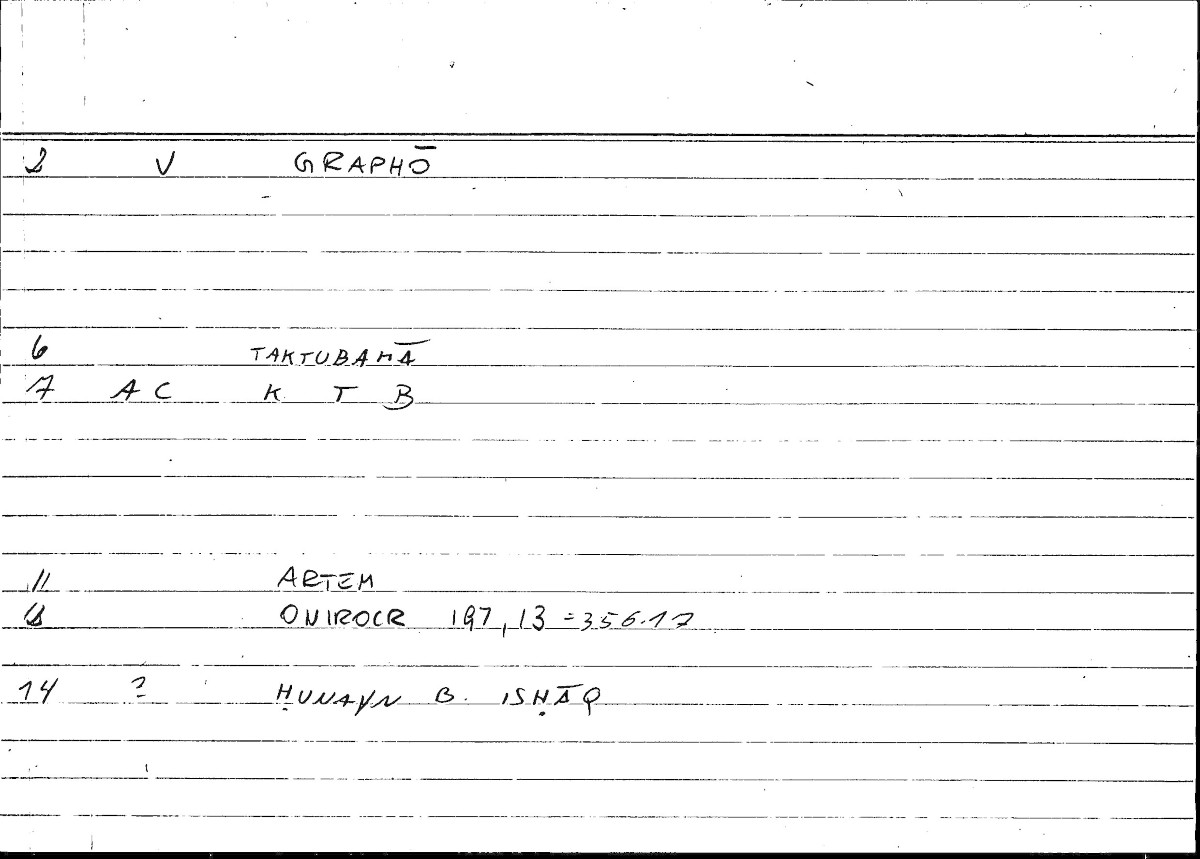 2 V GRAPHŌ
6 TAKTUBAHĀ
7 AC K T B
11 ARTEM
ONIROCR 197,13 = 356.17
14 ? ḤUNAYN B. ISḤĀQ